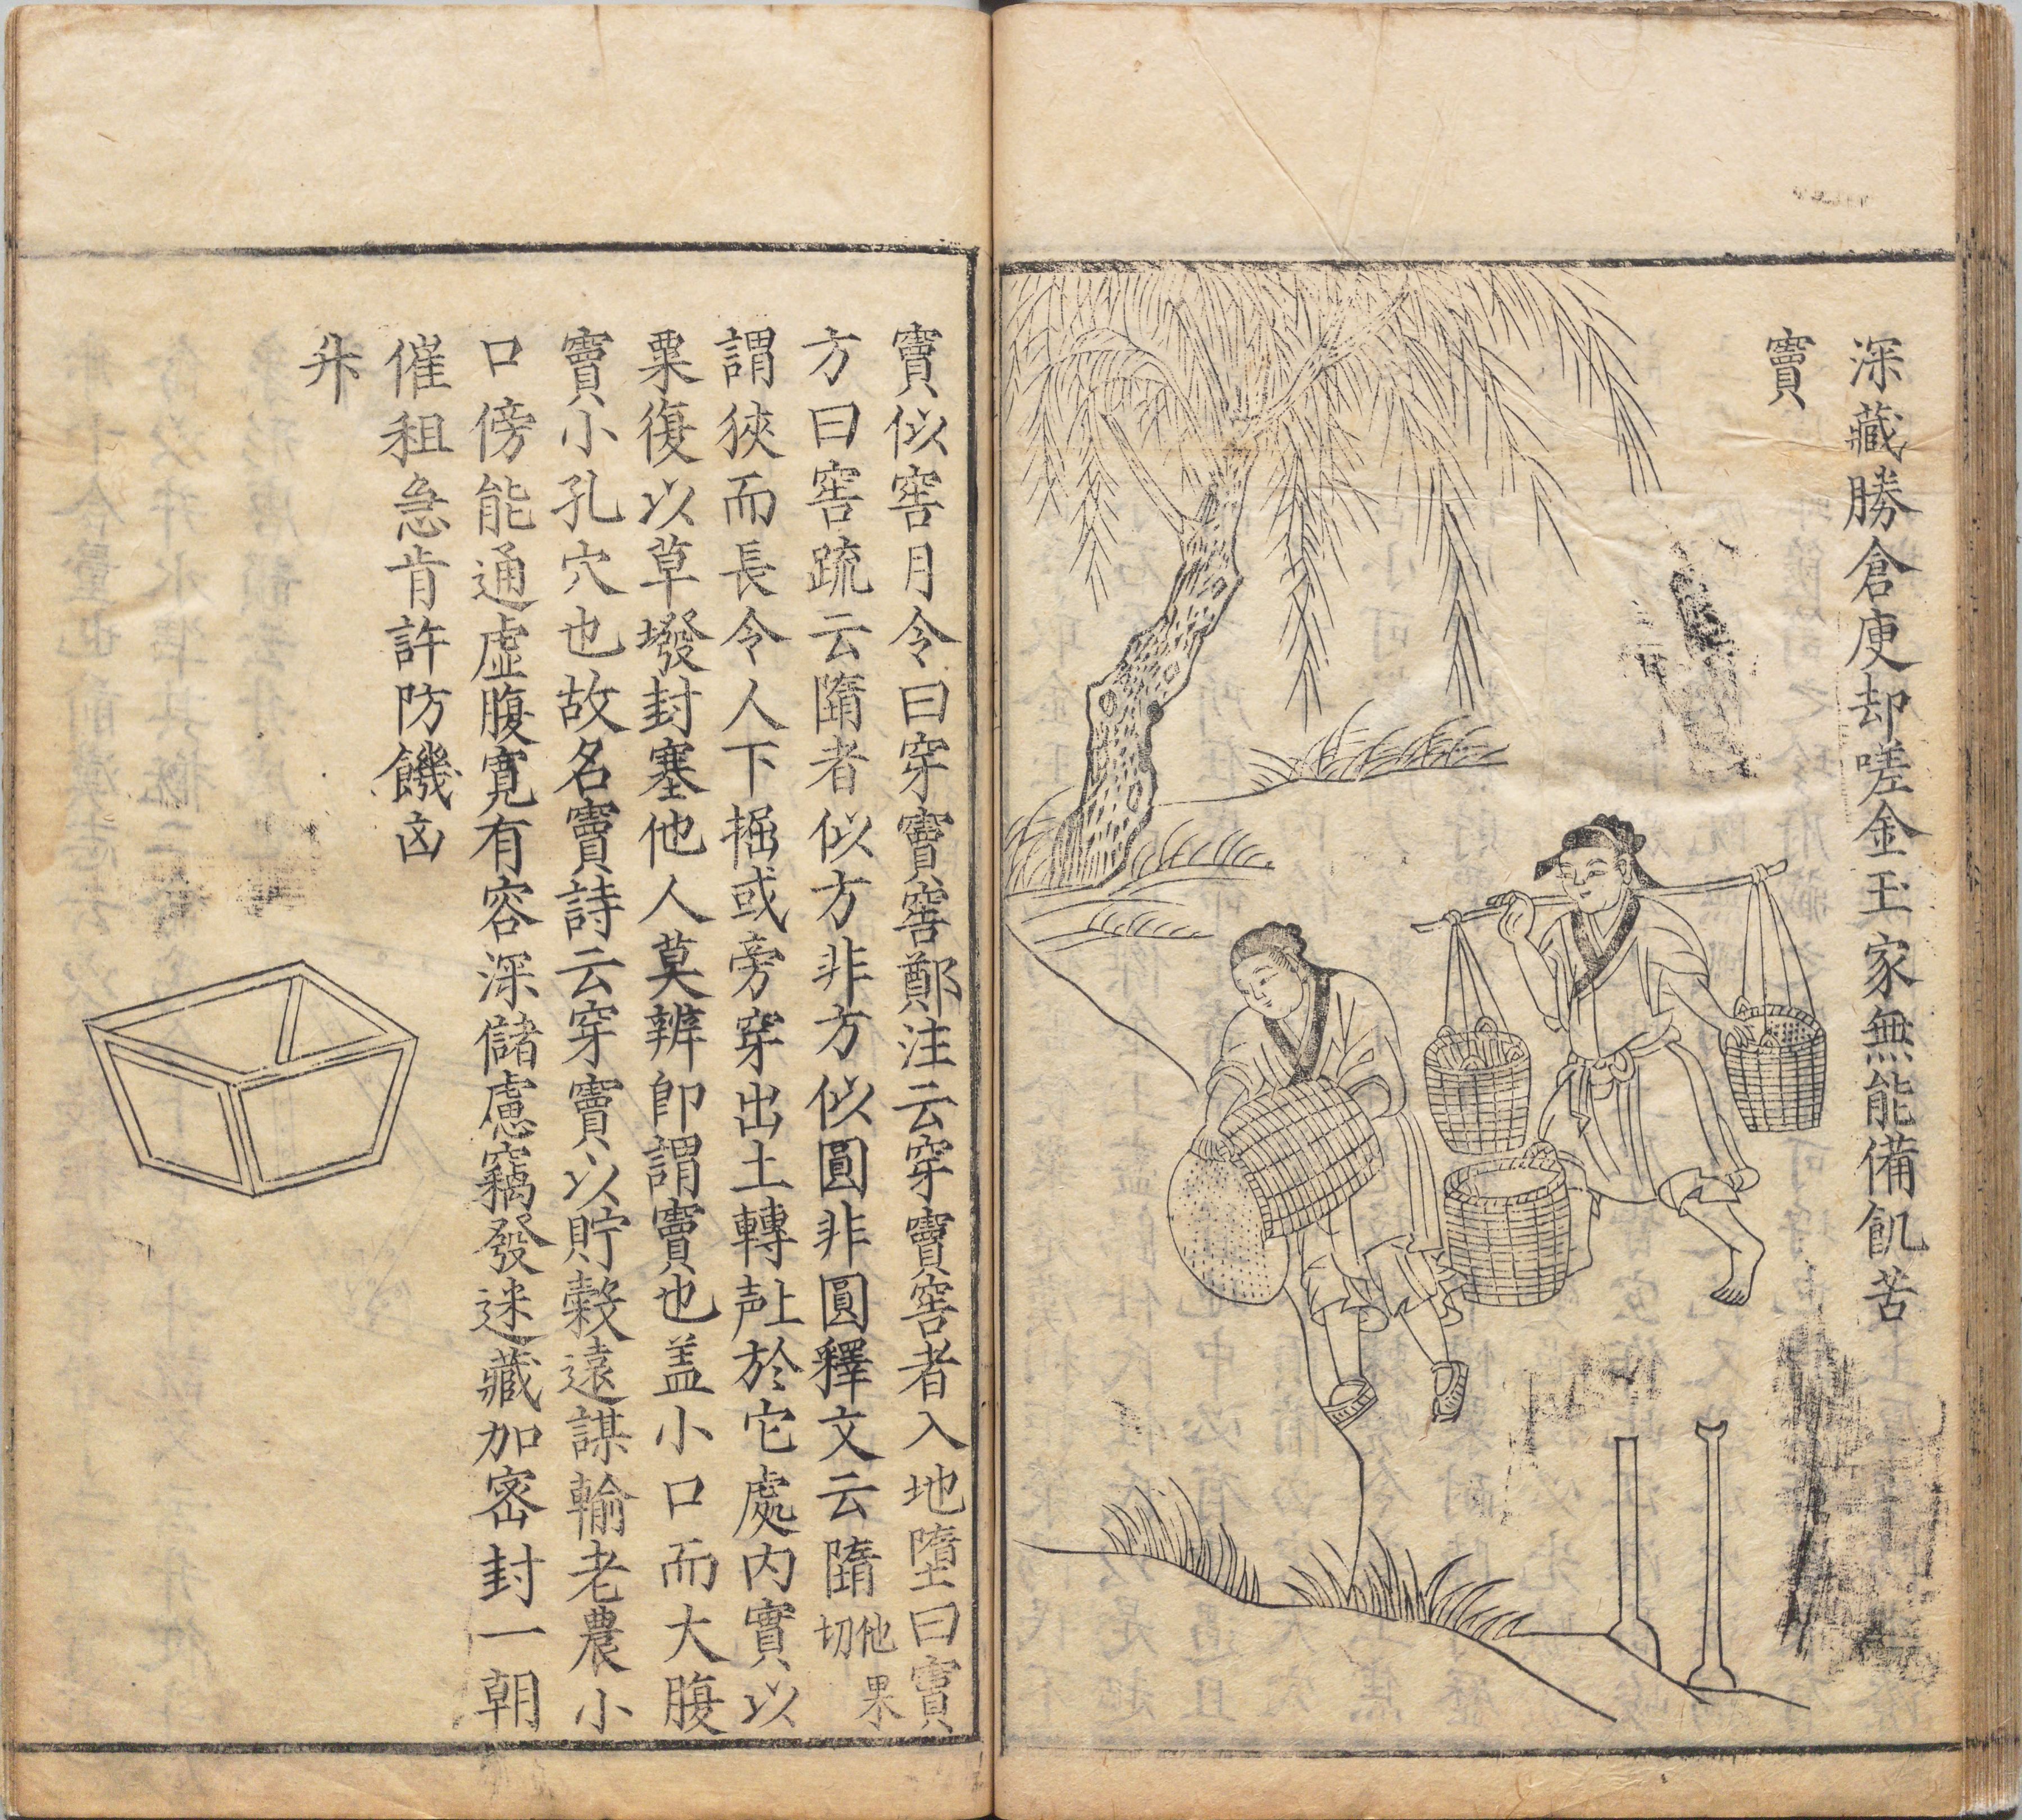 深藏勝倉庾却嗟金玉家無能備飢苦
竇
竇似窖月令曰穿竇窖鄭注云穿竇窖者入地墮曰竇
方曰窖疏云隋者似方非方似圓非圓釋文云隋他果切
謂狹而長令人下掘或旁穿出土轉於它處內實以
粟復以草墢封塞他人莫辨卽謂竇也盖小口而大腹
竇小孔穴也故名竇詩云穿竇以貯穀遠謀輸老農小
口傍能通虛腹寬有容深儲慮竊發迷藏加密封一朝
催租急肯許防饑凶
升